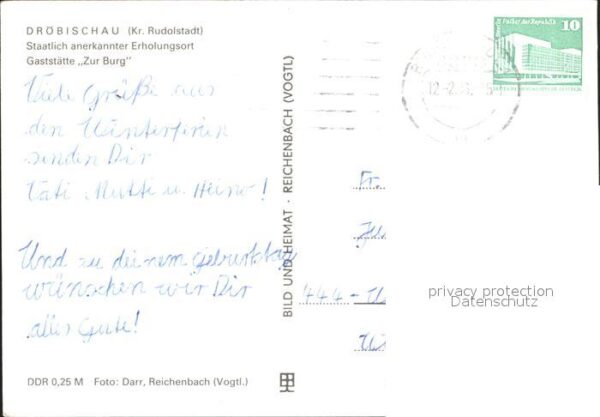 DRÖBISCHAU (Kr. Rudolstadt)
Staatlich anerkannter Erholungsort
Gaststätte „Zur Burg"
Viele Grüße aus
den Winterferien
senden Dir
Tati Mutti u. Heino!
Und zu deinem geburtstag
wünschen wir Dir
alles Gute!
DDR 0,25 M Foto: Darr, Reichenbach (Vogtl.)
BILD UND HEIMAT · REICHENBACH (VOGTL)
Palast der Republik
10
12.-2.
Fr.
444 -
privacy protection
Datenschutz